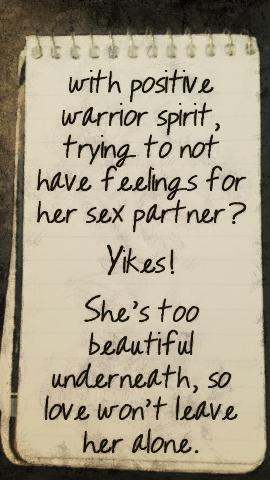 with positive
warrior spirit,
trying to not
have feelings for
her sex partner?
Yikes!
She's too
beautiful
underneath, so
love won't leave
her alone.